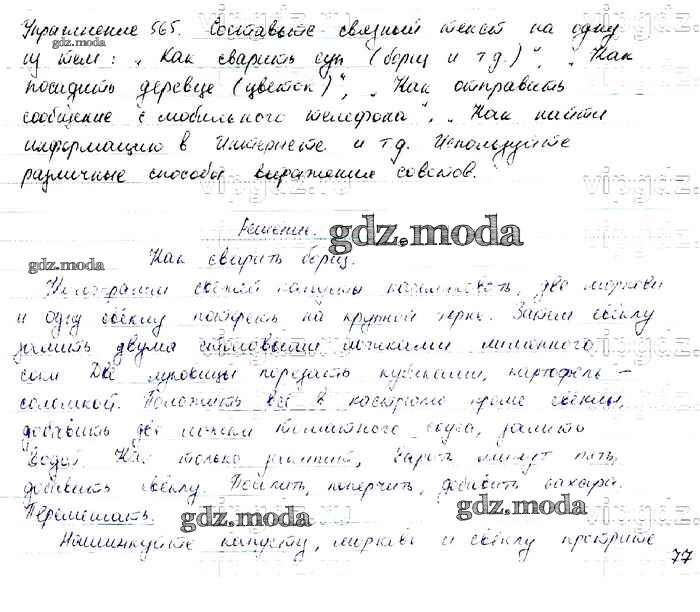 Упражнение 565. Составьте связный текст на одну
из тем: „Как сварить суп (борщ и т.д.)", „Как
посадить деревце (цветок)", „Как отправить
сообщение с мобильного телефона", „Как найти
информацию в Интернете и т.д. Используйте
различные способы выражения советов.
Решение.
gdz.moda
Как сварить борщ.
свежей капусты нашинковать, две моркови
и одну свёклу потереть на крупной терке. Затем свёклу
залить двумя столовыми ложками лимонного
сока Две луковицы порезать кубиками, картофель –
соломкой. Положить всё в кастрюлю кроме свёклы,
добавить две ложки томатного соуса, залить
водой. Как только закипит, варить минут пять,
добавить свёклу. Посолить, поперчить, добавить сахара.
Перемешать.
gdz.moda
Нашинкуйте капусту, морковь и свёклу протрите
77